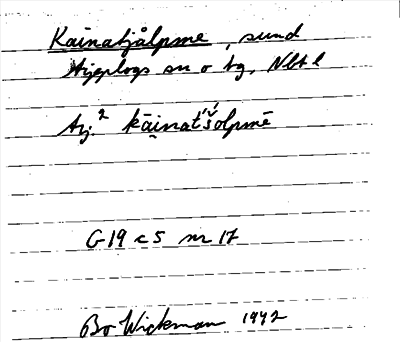 Kainatjålpme, sund
Arjeplogs sn o tg, Nbt l
Arj.² kāi̮nat́š́olpmē
G19 c5 nr 17
Bo Wickman 1942